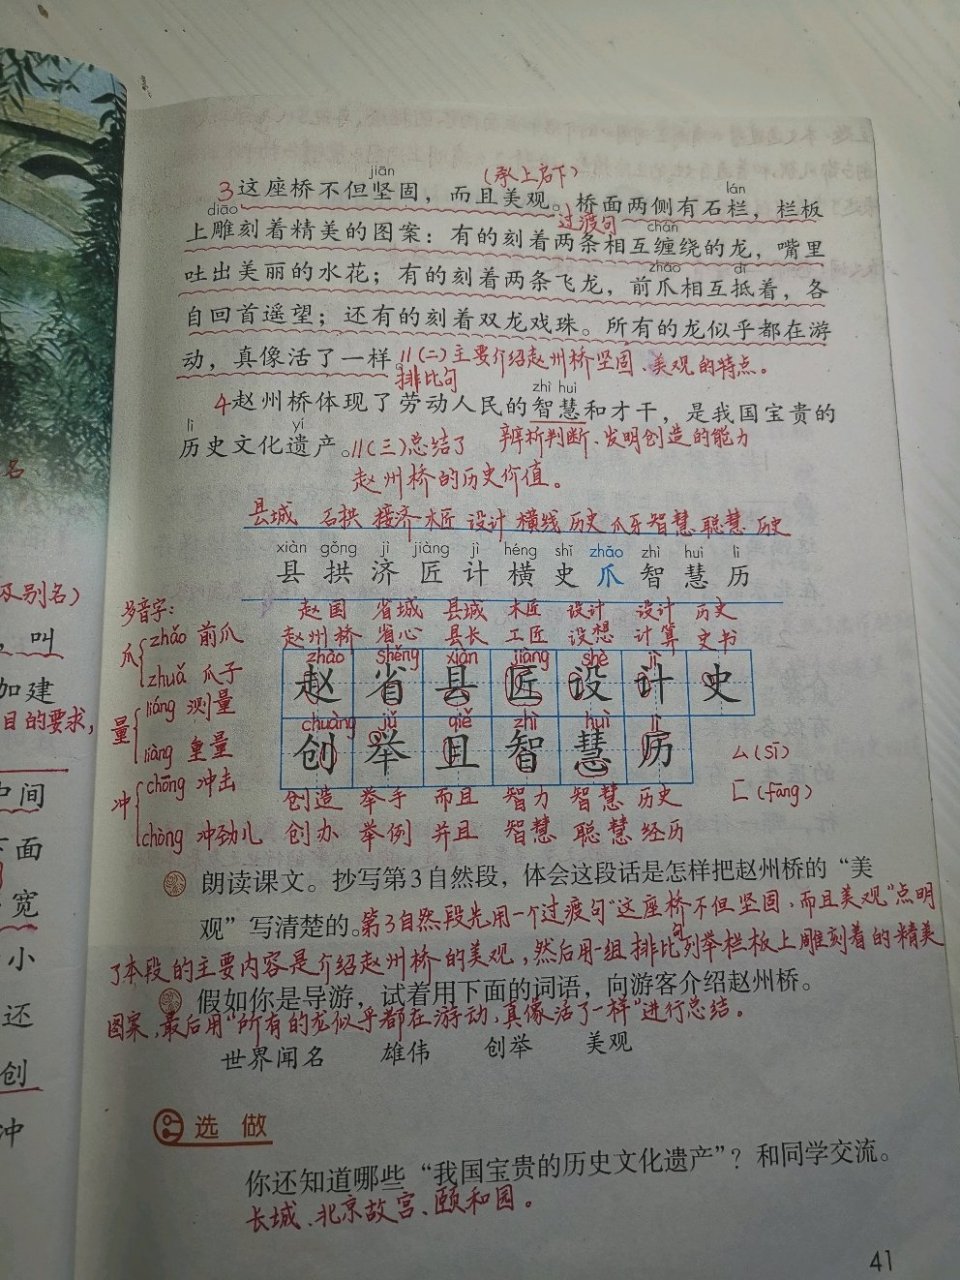 jiān (承上启下) lán
3这座桥不但坚固，而且美观。桥面两侧有石栏，栏板
diāo 过渡句 chán
上雕刻着精美的图案：有的刻着两条相互缠绕的龙，嘴里
zhǎo dǐ
吐出美丽的水花；有的刻着两条飞龙，前爪相互抵着，各
自回首遥望；还有的刻着双龙戏珠。所有的龙似乎都在游
动，真像活了一样。//(二)主要介绍赵州桥坚固、美观的特点。
排比句
zhì huì
4赵州桥体现了劳动人民的智慧和才干，是我国宝贵的
lì yí
历史文化遗产。//(三)总结了 辨析判断、发明创造的能力
赵州桥的历史价值。
县城 石拱 接济 木匠 设计 横线 历史 爪牙 智慧 聪慧 历史
xiàn gǒng jì jiàng jì héng shǐ zhǎo zhì huì lì
县 拱 济 匠 计 横 史 爪 智 慧 历
多音字：
爪 zhǎo 前爪
zhuǎ 爪子
量 liáng 测量
liàng 重量
冲 chōng 冲击
chòng 冲劲儿
赵国 省城 县城 木匠 设计 设计 历史
赵州桥 省心 县长 工匠 设想 计算 史书
zhào shěng xiàn jiàng shè jì
赵 省 县 匠 设 计 史
chuàng jǔ qiě zhì huì lì
创 举 且 智 慧 历
厶(sī)
匚(fāng)
创造 举手 而且 智力 智慧 历史
创办 举例 并且 智慧 聪慧 经历
朗读课文。抄写第3自然段，体会这段话是怎样把赵州桥的“美
观”写清楚的。第3自然段先用一个过渡句“这座桥不但坚固，而且美观”点明
了本段的主要内容是介绍赵州桥的美观，然后用一组排比句列举栏板上雕刻着的精美
假如你是导游，试着用下面的词语，向游客介绍赵州桥。
图案，最后用“所有的龙似乎都在游动，真像活了一样”进行总结。
世界闻名 雄伟 创举 美观
选做
你还知道哪些“我国宝贵的历史文化遗产”？和同学交流。
长城、北京故宫、颐和园。
41
名
及别名)
，叫
加建
目的要求，
中间
下面
宽
小
还
创
冲